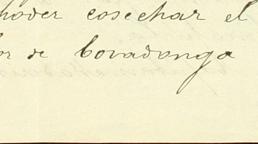 poder cosechar el
or de Covadonga